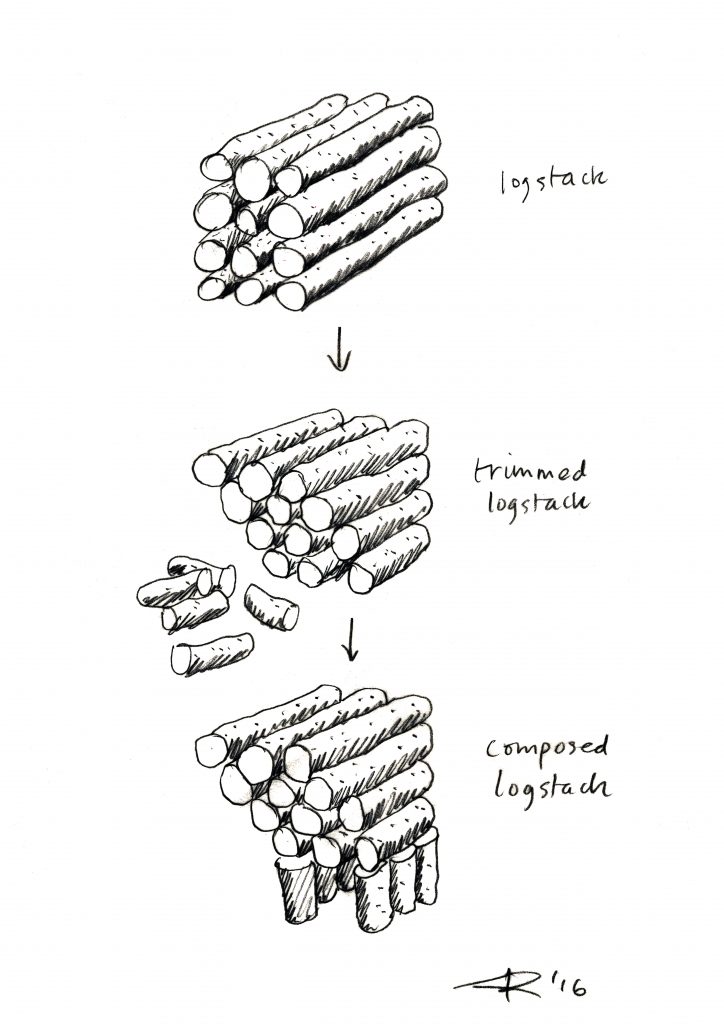 logstack
trimmed
logstack
composed
logstack
'16